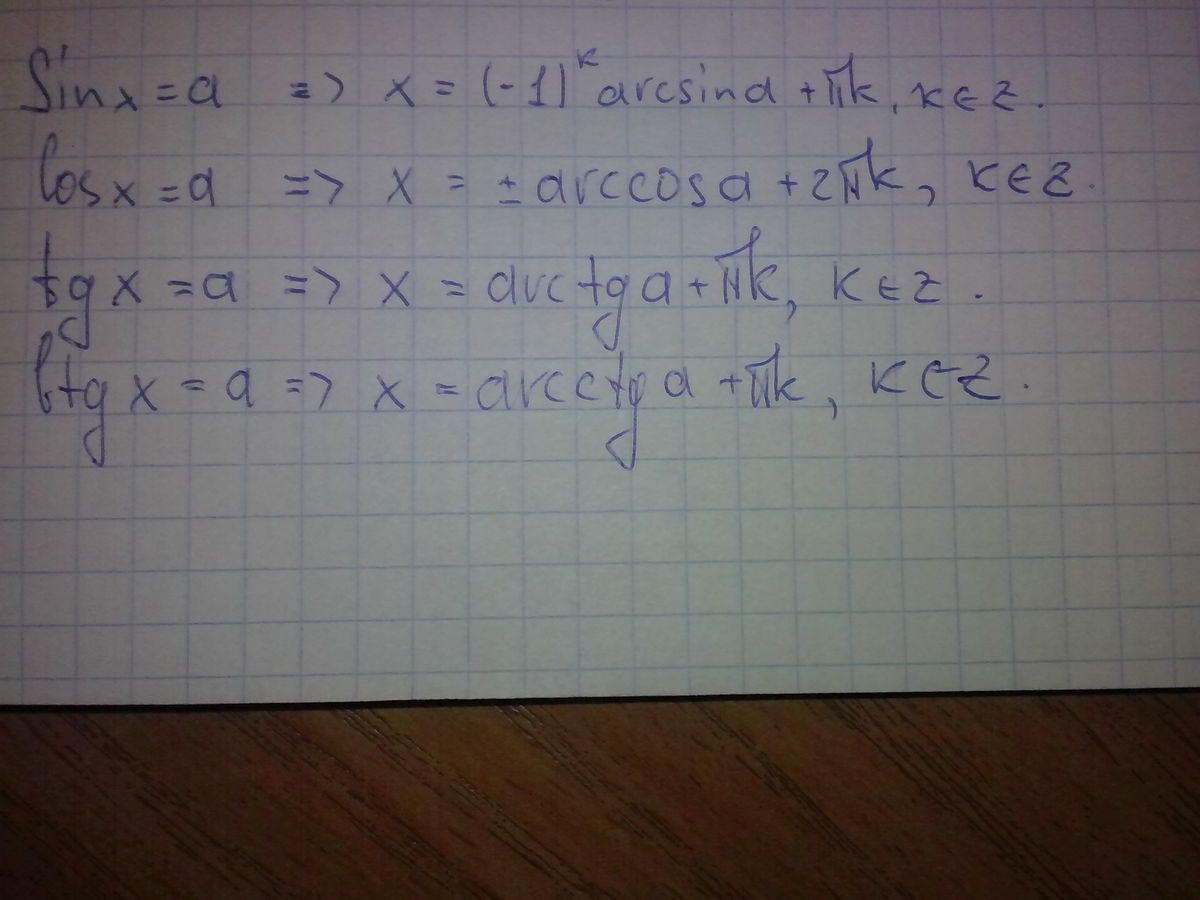 Sin x = a => x = (-1)^k arcsin a + πk, k ∈ z.
Cos x = a => x = ± arccos a + 2πk, k ∈ z.
tg x = a => x = arctg a + πk, k ∈ z.
Ctg x = a => x = arcctg a + πk, k ∈ z.